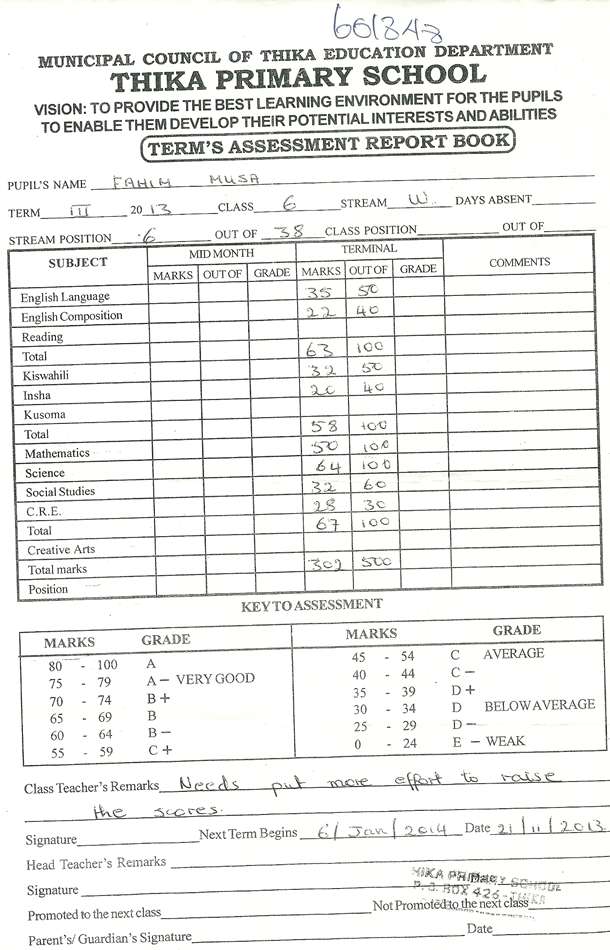 661848
MUNICIPAL COUNCIL OF THIKA EDUCATION DEPARTMENT
THIKA PRIMARY SCHOOL
VISION: TO PROVIDE THE BEST LEARNING ENVIRONMENT FOR THE PUPILS
TO ENABLE THEM DEVELOP THEIR POTENTIAL INTERESTS AND ABILITIES
TERM'S ASSESSMENT REPORT BOOK
PUPIL'S NAME FAHIM MUSA
TERM III 2013 CLASS 6 STREAM W DAYS ABSENT
STREAM POSITION 6 OUT OF 38 CLASS POSITION OUT OF
SUBJECT MID MONTH TERMINAL COMMENTS
MARKS OUT OF GRADE MARKS OUT OF GRADE
English Language 35 50
English Composition 22 40
Reading
Total 63 100
Kiswahili 32 50
Insha 20 40
Kusoma
Total 58 100
Mathematics 50 100
Science 64 100
Social Studies 32 60
C.R.E. 28 30
Total 67 100
Creative Arts
Total marks 302 500
Position
KEY TO ASSESSMENT
MARKS GRADE MARKS GRADE
80 - 100 A 45 - 54 C AVERAGE
75 - 79 A- VERY GOOD 40 - 44 C-
70 - 74 B+ 35 - 39 D+
65 - 69 B 30 - 34 D BELOW AVERAGE
60 - 64 B- 25 - 29 D-
55 - 59 C+ 0 - 24 E - WEAK
Class Teacher's Remarks Needs put more effort to raise
the scores.
Signature Next Term Begins 6/Jan/2014 Date 21/11/2013
Head Teacher's Remarks
HIKA PRIMARY SCHOOL
Signature P. O. BOX 426 - THIKA
Promoted to the next class Not Promoted to the next class
Parent's/ Guardian's Signature Date